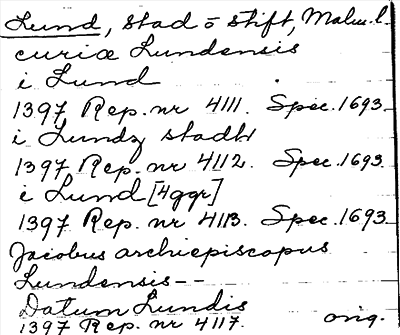 Lund, stad o stift, Malm. l.
curiæ Lundensis
i Lund
1397 Rep. nr 4111. Spec. 1693.
i Lundz stadh
1397 Rep. nr 4112. Spec. 1693.
i Lund [4ggr]
1397 Rep. nr 4113. Spec. 1693.
Jacobus archiepiscopus
Lundensis--
Datum Lundis
1397 Rep. nr 4117. orig.